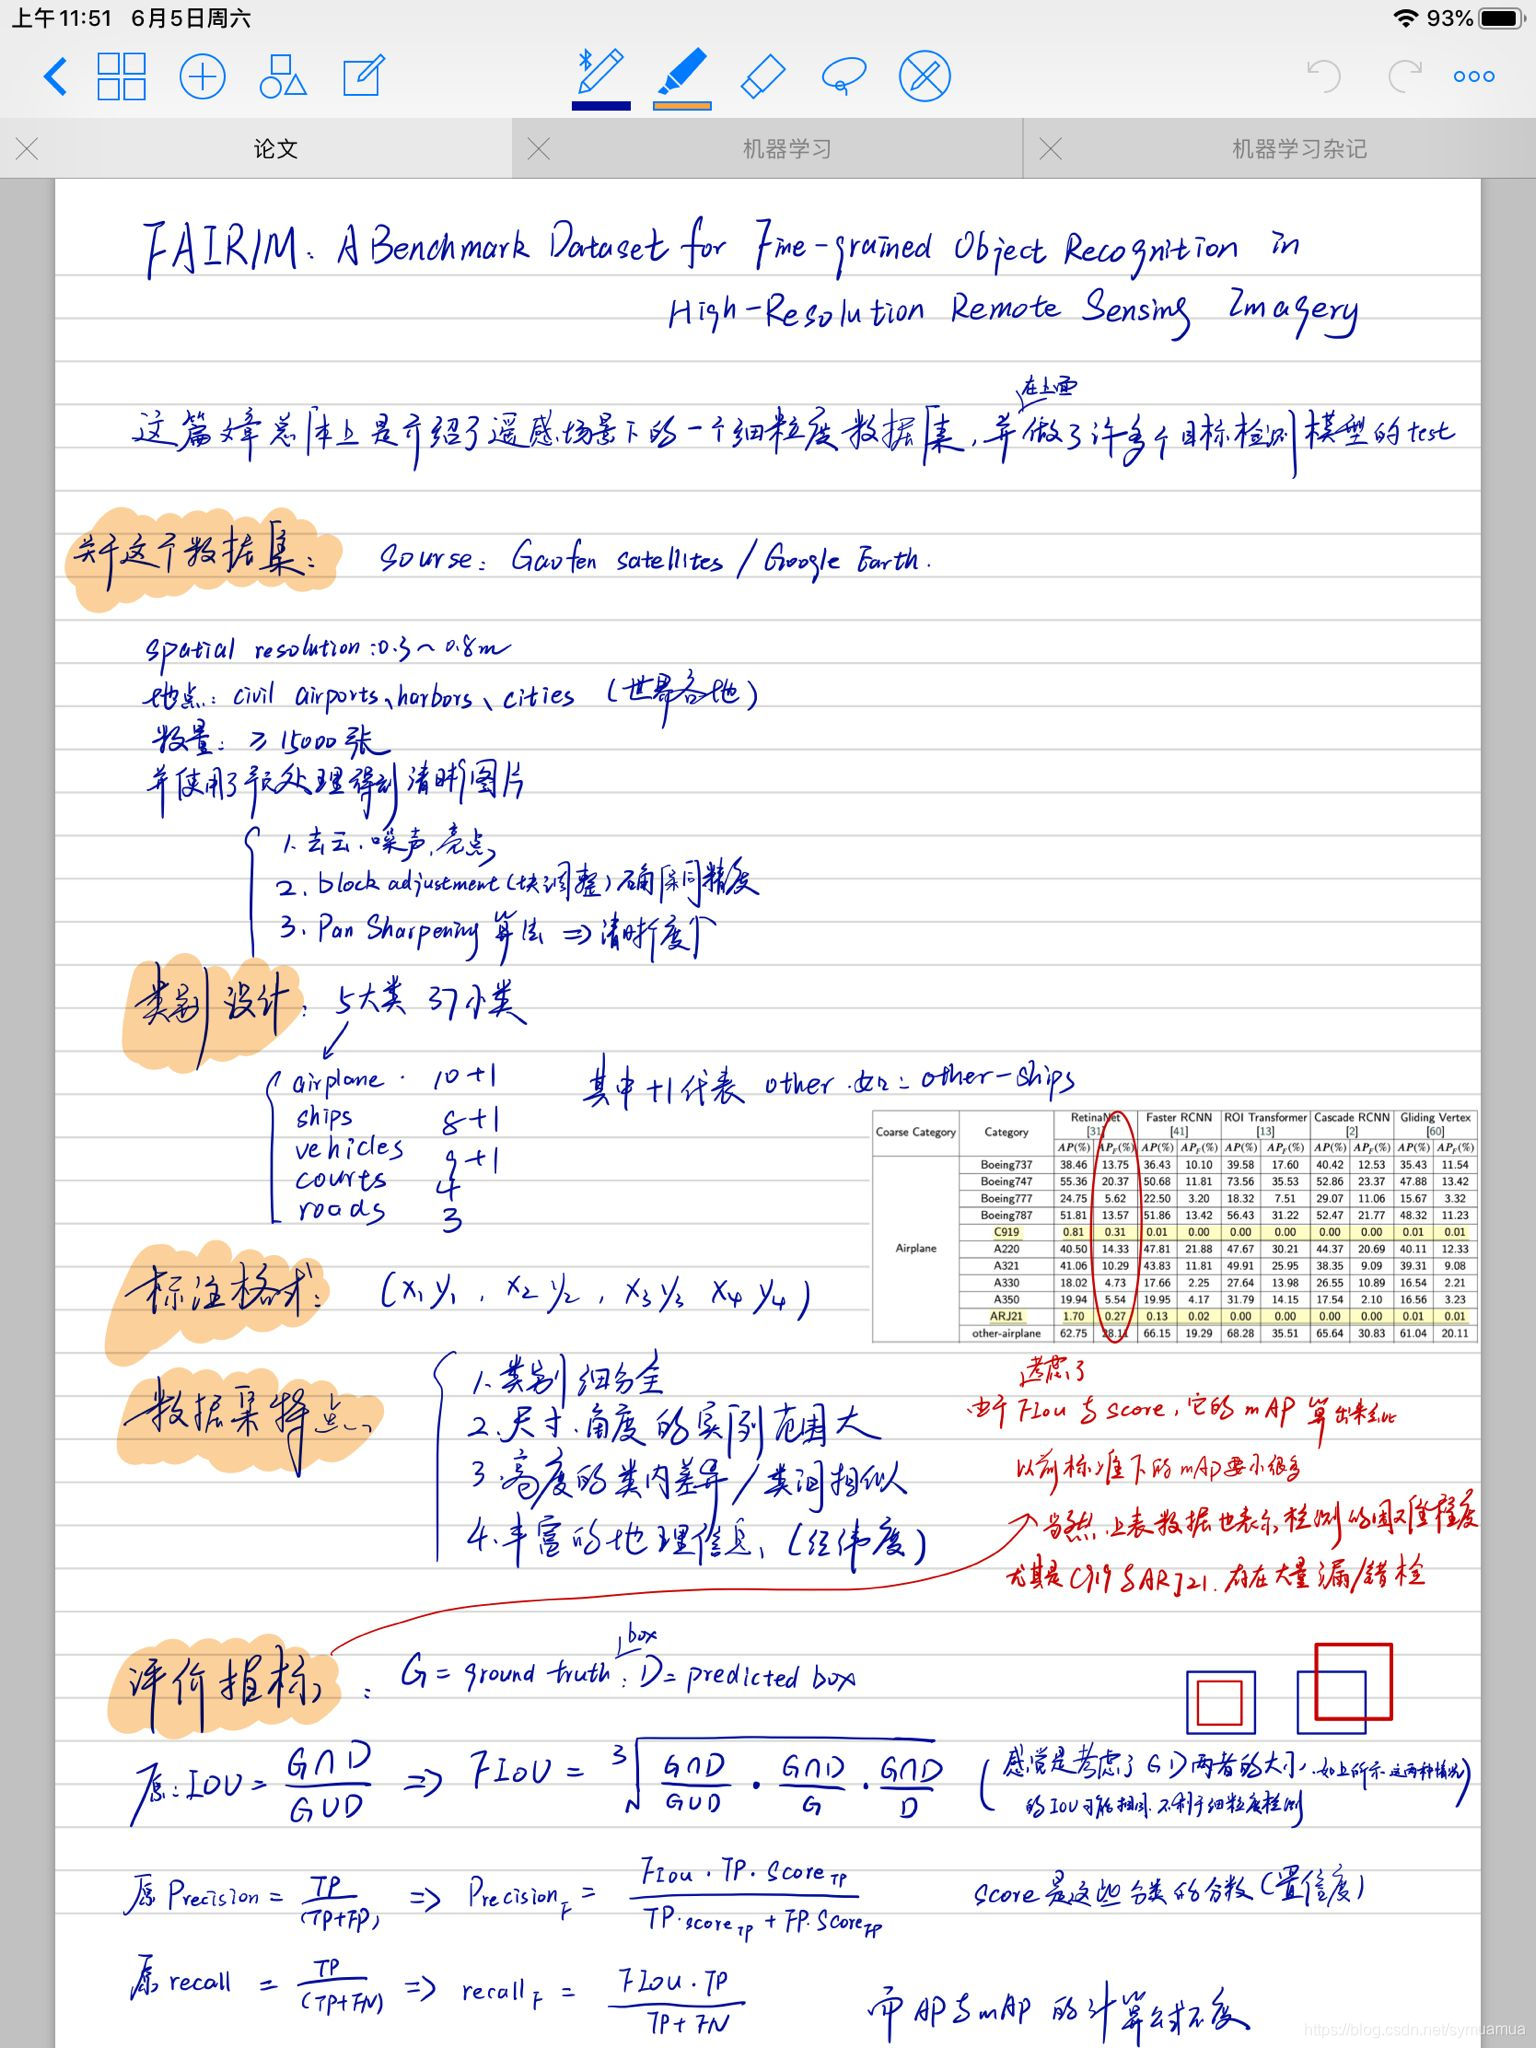 上午11:51 6月5日周六 93%
论文 机器学习 机器学习杂记
FAIR1M: A Benchmark Dataset for Fine-grained Object Recognition in
High-Resolution Remote Sensing Imagery
在上面
这篇文章总体上是介绍了遥感场景下的一个细粒度数据集,并做了许多个目标检测模型的test
关于这个数据集: Sourse: Gaofen satellites / Google Earth.
spatial resolution:0.3~0.8m
地点: civil airports、harbors、cities (世界各地)
数量: ≥15000张
并使用了预处理得到清晰图片
1.去云.噪声.亮点
2. block adjustment(块调整)确保同精度
3. Pan Sharpening 算法 => 清晰度↑
类别设计: 5大类 37小类
airplane. 10+1 其中+1代表 other.如: other-ships
ships 8+1
vehicles 9+1
courts 4
roads 3
Coarse Category Category RetinaNet [31] Faster RCNN [41] ROI Transformer [13] Cascade RCNN [2] Gliding Vertex [60]
AP(%) AP_F(%) AP(%) AP_F(%) AP(%) AP_F(%) AP(%) AP_F(%) AP(%) AP_F(%)
Airplane
Boeing737 38.46 13.75 36.43 10.10 39.58 17.60 40.42 12.53 35.43 11.54
Boeing747 55.36 20.37 50.68 11.81 73.56 35.53 52.86 23.37 47.88 13.42
Boeing777 24.75 5.62 22.50 3.20 18.32 7.51 29.07 11.06 15.67 3.32
Boeing787 51.81 13.57 51.86 13.42 56.43 31.22 52.47 21.77 48.32 11.23
C919 0.81 0.31 0.01 0.00 0.00 0.00 0.00 0.00 0.01 0.01
A220 40.50 14.33 47.81 21.88 47.67 30.21 44.37 20.69 40.11 12.33
A321 41.06 10.29 43.83 11.81 49.91 25.95 38.35 9.09 39.31 9.08
A330 18.02 4.73 17.66 2.25 27.64 13.98 26.55 10.89 16.54 2.21
A350 19.94 5.54 19.95 4.17 31.79 14.15 17.54 2.10 16.56 3.23
ARJ21 1.70 0.27 0.13 0.02 0.00 0.00 0.00 0.00 0.01 0.01
other-airplane 62.75 28.11 66.15 19.29 68.28 35.51 65.64 30.83 61.04 20.11
标注格式: (x₁y₁, x₂y₂, x₃y₃ x₄y₄)
数据集特点、
1.类别细分全
2.尺寸.角度的实例范围大
3.高度的类内差异/类间相似
4.丰富的地理信息、(经纬度)
考虑了
由于FIou与score,它的mAP算出来会比
以前标准下的mAP要小很多
当然.上表数据也表示检测的困难程度
尤其是C919与ARJ21.存在大量漏/错检
box
评价指标: G=ground truth: D=predicted box
原:IOU = G∩D/G∪D => FIoU = ∛(G∩D/G∪D · G∩D/G · G∩D/D) (感觉是考虑了GD两者的大小.如上所示.这两种情况
的IOU可能相同.不利于细粒度检测)
原Precision = TP/(TP+FP) => Precision_F = FIou·TP·Score_TP/TP·score_TP+FP·Score_FP score是这些分类的分数(置信度)
原recall = TP/(TP+FN) => recall_F = FIou·TP/TP+FN 而AP与mAP的计算公式不变
https://blog.csdn.net/symuamua